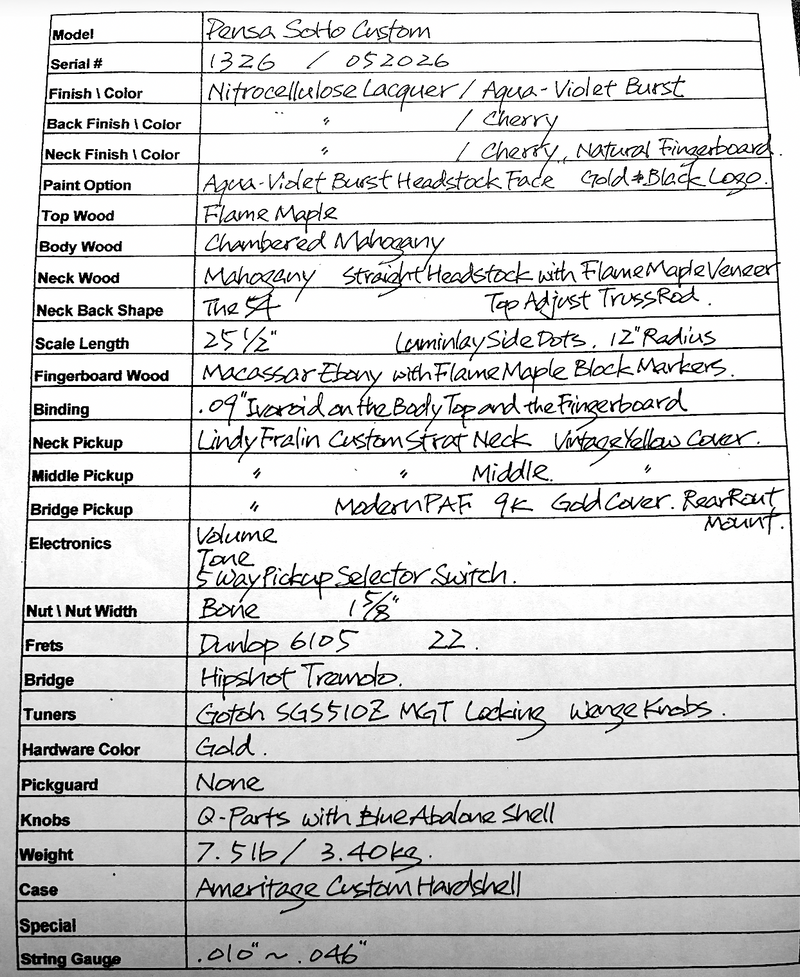 Model Pensa SoHo Custom
Serial # 1326 / 052026
Finish \ Color Nitrocellulose Lacquer / Aqua-Violet Burst
Back Finish \ Color " " / Cherry
Neck Finish \ Color " / Cherry, Natural Fingerboard.
Paint Option Aqua-Violet Burst Headstock Face Gold & Black Logo.
Top Wood Flame Maple
Body Wood Chambered Mahogany
Neck Wood Mahogany Straight Headstock with Flame Maple Veneer
Neck Back Shape The 54 Top Adjust Truss Rod.
Scale Length 25 1/2" Luminlay Side Dots. 12" Radius
Fingerboard Wood Macassar Ebony with Flame Maple Block Markers.
Binding .09" Ivoroid on the Body Top and the Fingerboard
Neck Pickup Lindy Fralin Custom Strat Neck Vintage Yellow Cover.
Middle Pickup " " Middle. "
Bridge Pickup " Modern PAF 9K Gold Cover. Rear Rout
Mount.
Electronics Volume
Tone
5 Way Pickup Selector Switch.
Nut \ Nut Width Bone 1 5/8"
Frets Dunlop 6105 22.
Bridge Hipshot Tremolo.
Tuners Gotoh SGS510Z MGT Locking Wenge Knobs.
Hardware Color Gold.
Pickguard None
Knobs Q-Parts with Blue Abalone Shell
Weight 7.5lb / 3.40kg.
Case Ameritage Custom Hardshell
Special
String Gauge .010" ~ .046"